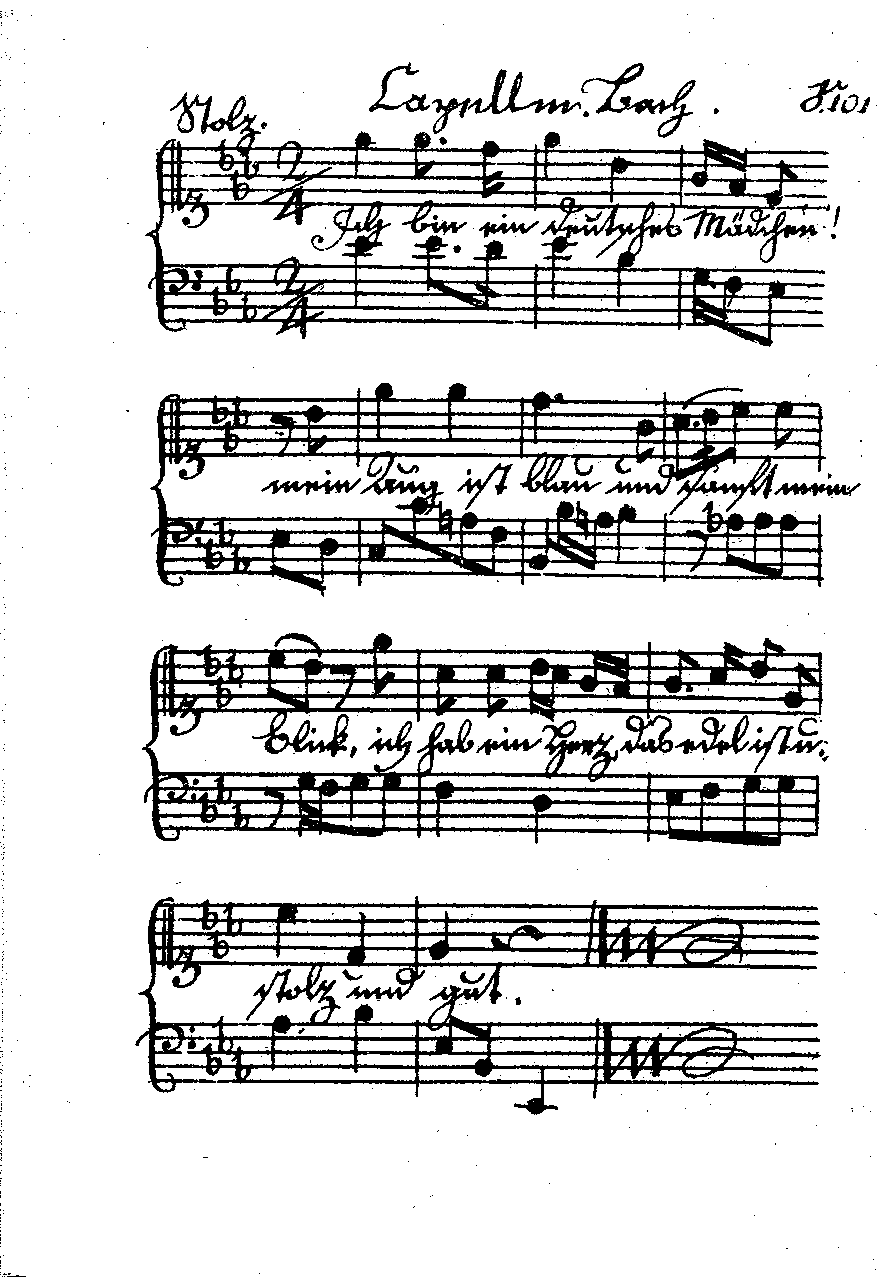 Stolz. Capellm. Bach. S. 101
2/4 Ich bin ein deutsches Mädchen!
2/4
mein Aug ist blau und sanft mein
Blick, ich hab ein Herz, das edel ist u:
stolz und gut.